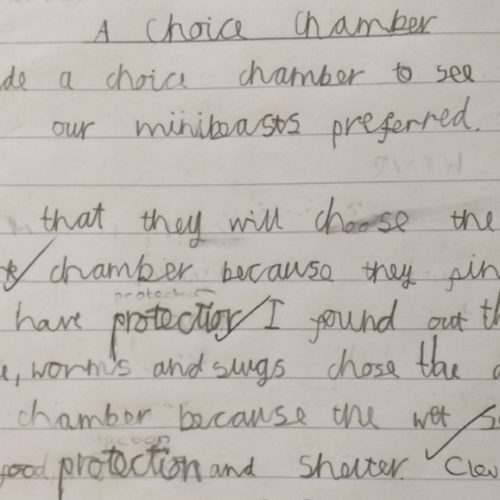 A Choice Chamber
de a choice chamber to see
our minibeasts preferred.
that they will choose the
chamber because they fin
protection
have protection I found out th
e, worms and slugs chose the
chamber because the wet
good protection and shelter. Clev